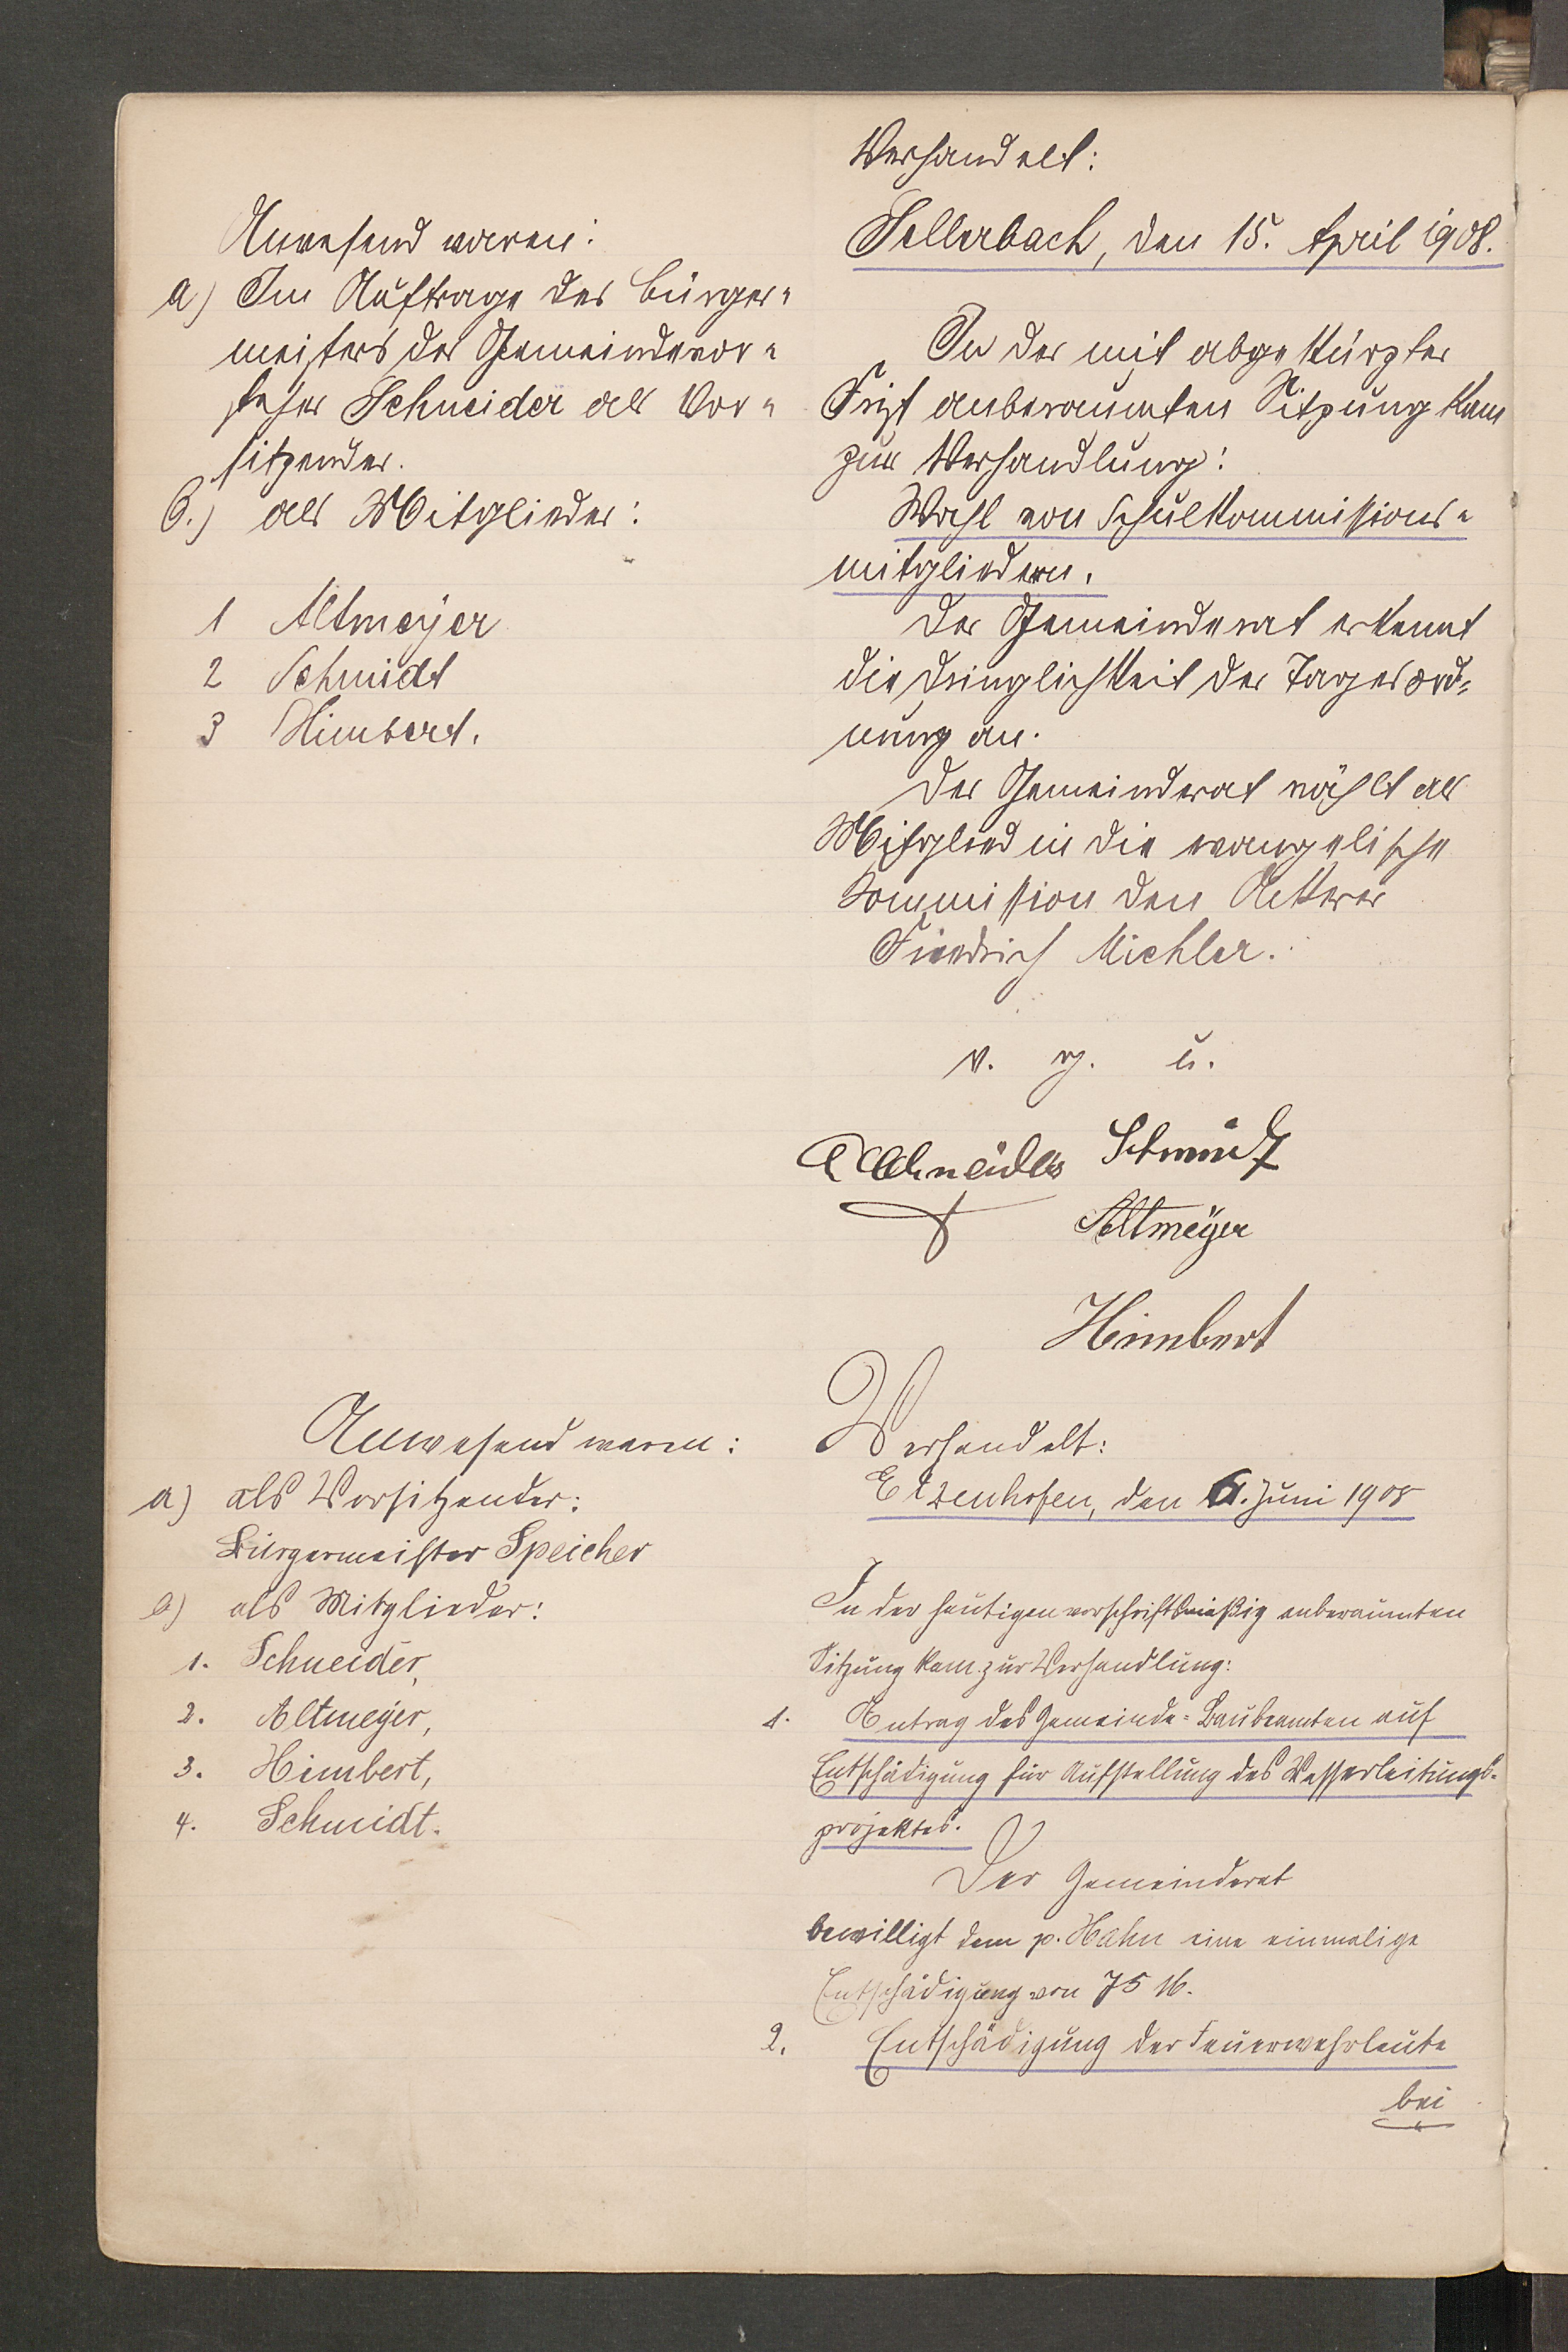 Anwesend waren:
a) Im Auftrage des Bürger-
meisters der Gemeindevor-
steher Schneider als Vor-
sitzender.
b.) als Mitglieder:
1 Altmeyer
2 Schmidt
3 Himbert.
Verhandelt:
Sellerbach, den 15. April 1908.
In der mit abgekürzter
Frist anberaumten Sitzung kam
zur Verhandlung:
Wahl von Schulkommissions-
mitgliedern.
Der Gemeinderat erkennt
die Dringlichkeit der Tagesord-
nung an.
Der Gemeinderat wählt als
Mitglied in die evangelische
Kommission den Ackerer
Friedrich Michler.
v. g. u.
Schneider Schmidt
Altmeyer
Himbert
Anwesend waren:
a) als Vorsitzender:
Bürgermeister Speicher
b) als Mitglieder:
1. Schneider,
2. Altmeyer,
3. Himbert,
4. Schmidt.
Verhandelt:
Etzenhofen, den 6. Juni 1908
In der heutigen vorschriftsmäßig anberaumten
Sitzung kam zur Verhandlung:
1. Antrag des Gemeinde-Baubeamten auf
Entschädigung für Aufstellung des Wasserleitungs-
projektes.
Der Gemeinderat
bewilligt dem p. Hahn eine einmalige
Entschädigung von 75 M.
2. Entschädigung der Feuerwehrleute
bei